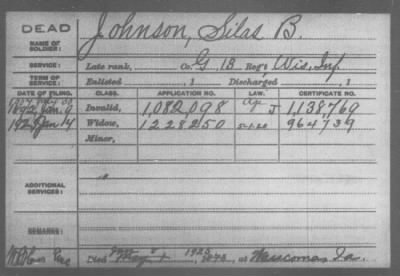 DEAD
NAME OF SOLDIER:
Johnson, Silas B.
SERVICE:
Late rank, Co. G, 18 Reg't Wis. Inf.
TERM OF SERVICE:
Enlisted , 1 Discharged , 1
DATE OF FILING. CLASS. APPLICATION NO. LAW. CERTIFICATE NO.
1892 Jan. 9 Invalid, 1,082,098 J 1,138,769
192 Jan 14 Widow, 1228250 964739
Minor,
ADDITIONAL SERVICES:
REMARKS:
Died 1925, at Waucoma, Ia.